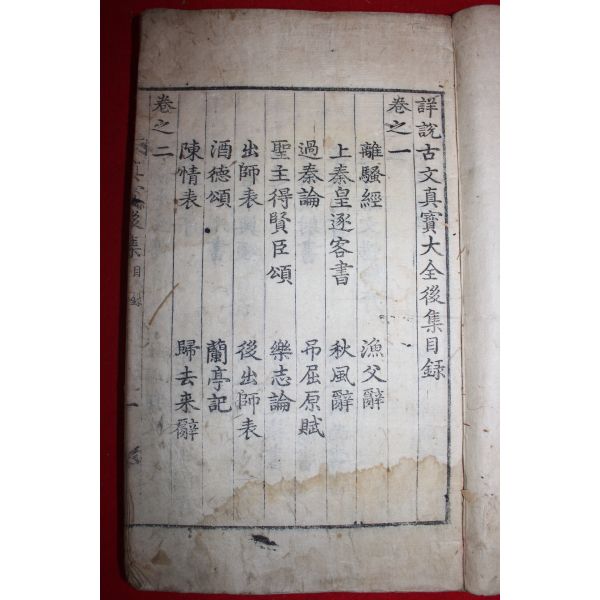 詳說古文真寶大全後集目録
卷之一
離騷經 漁父辭
上秦皇逐客書 秋風辭
過秦論 吊屈原賦
聖主得賢臣頌 樂志論
出師表 後出師表
酒德頌 蘭亭記
陳情表 歸去来辭
卷之二
真寶後集 目録 一